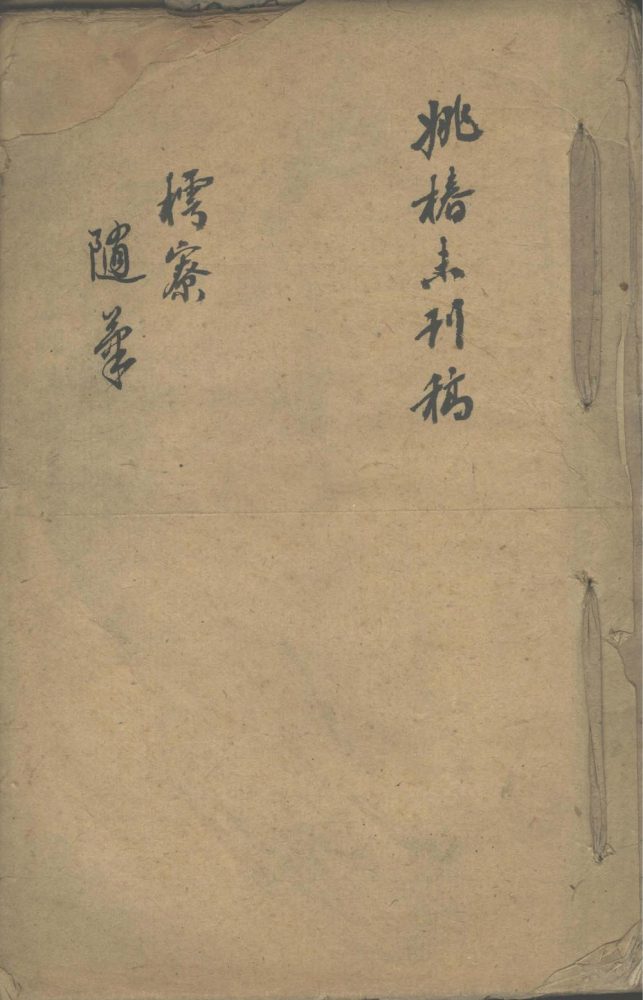 姚椿未刊稿
樗寮
随筆